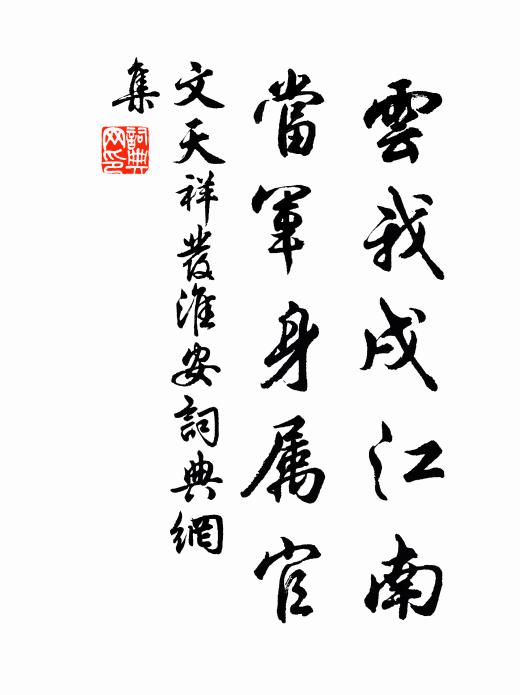 雲我戍江南
當軍身属官
文天祥發淮安詞典網
集
詞典网印